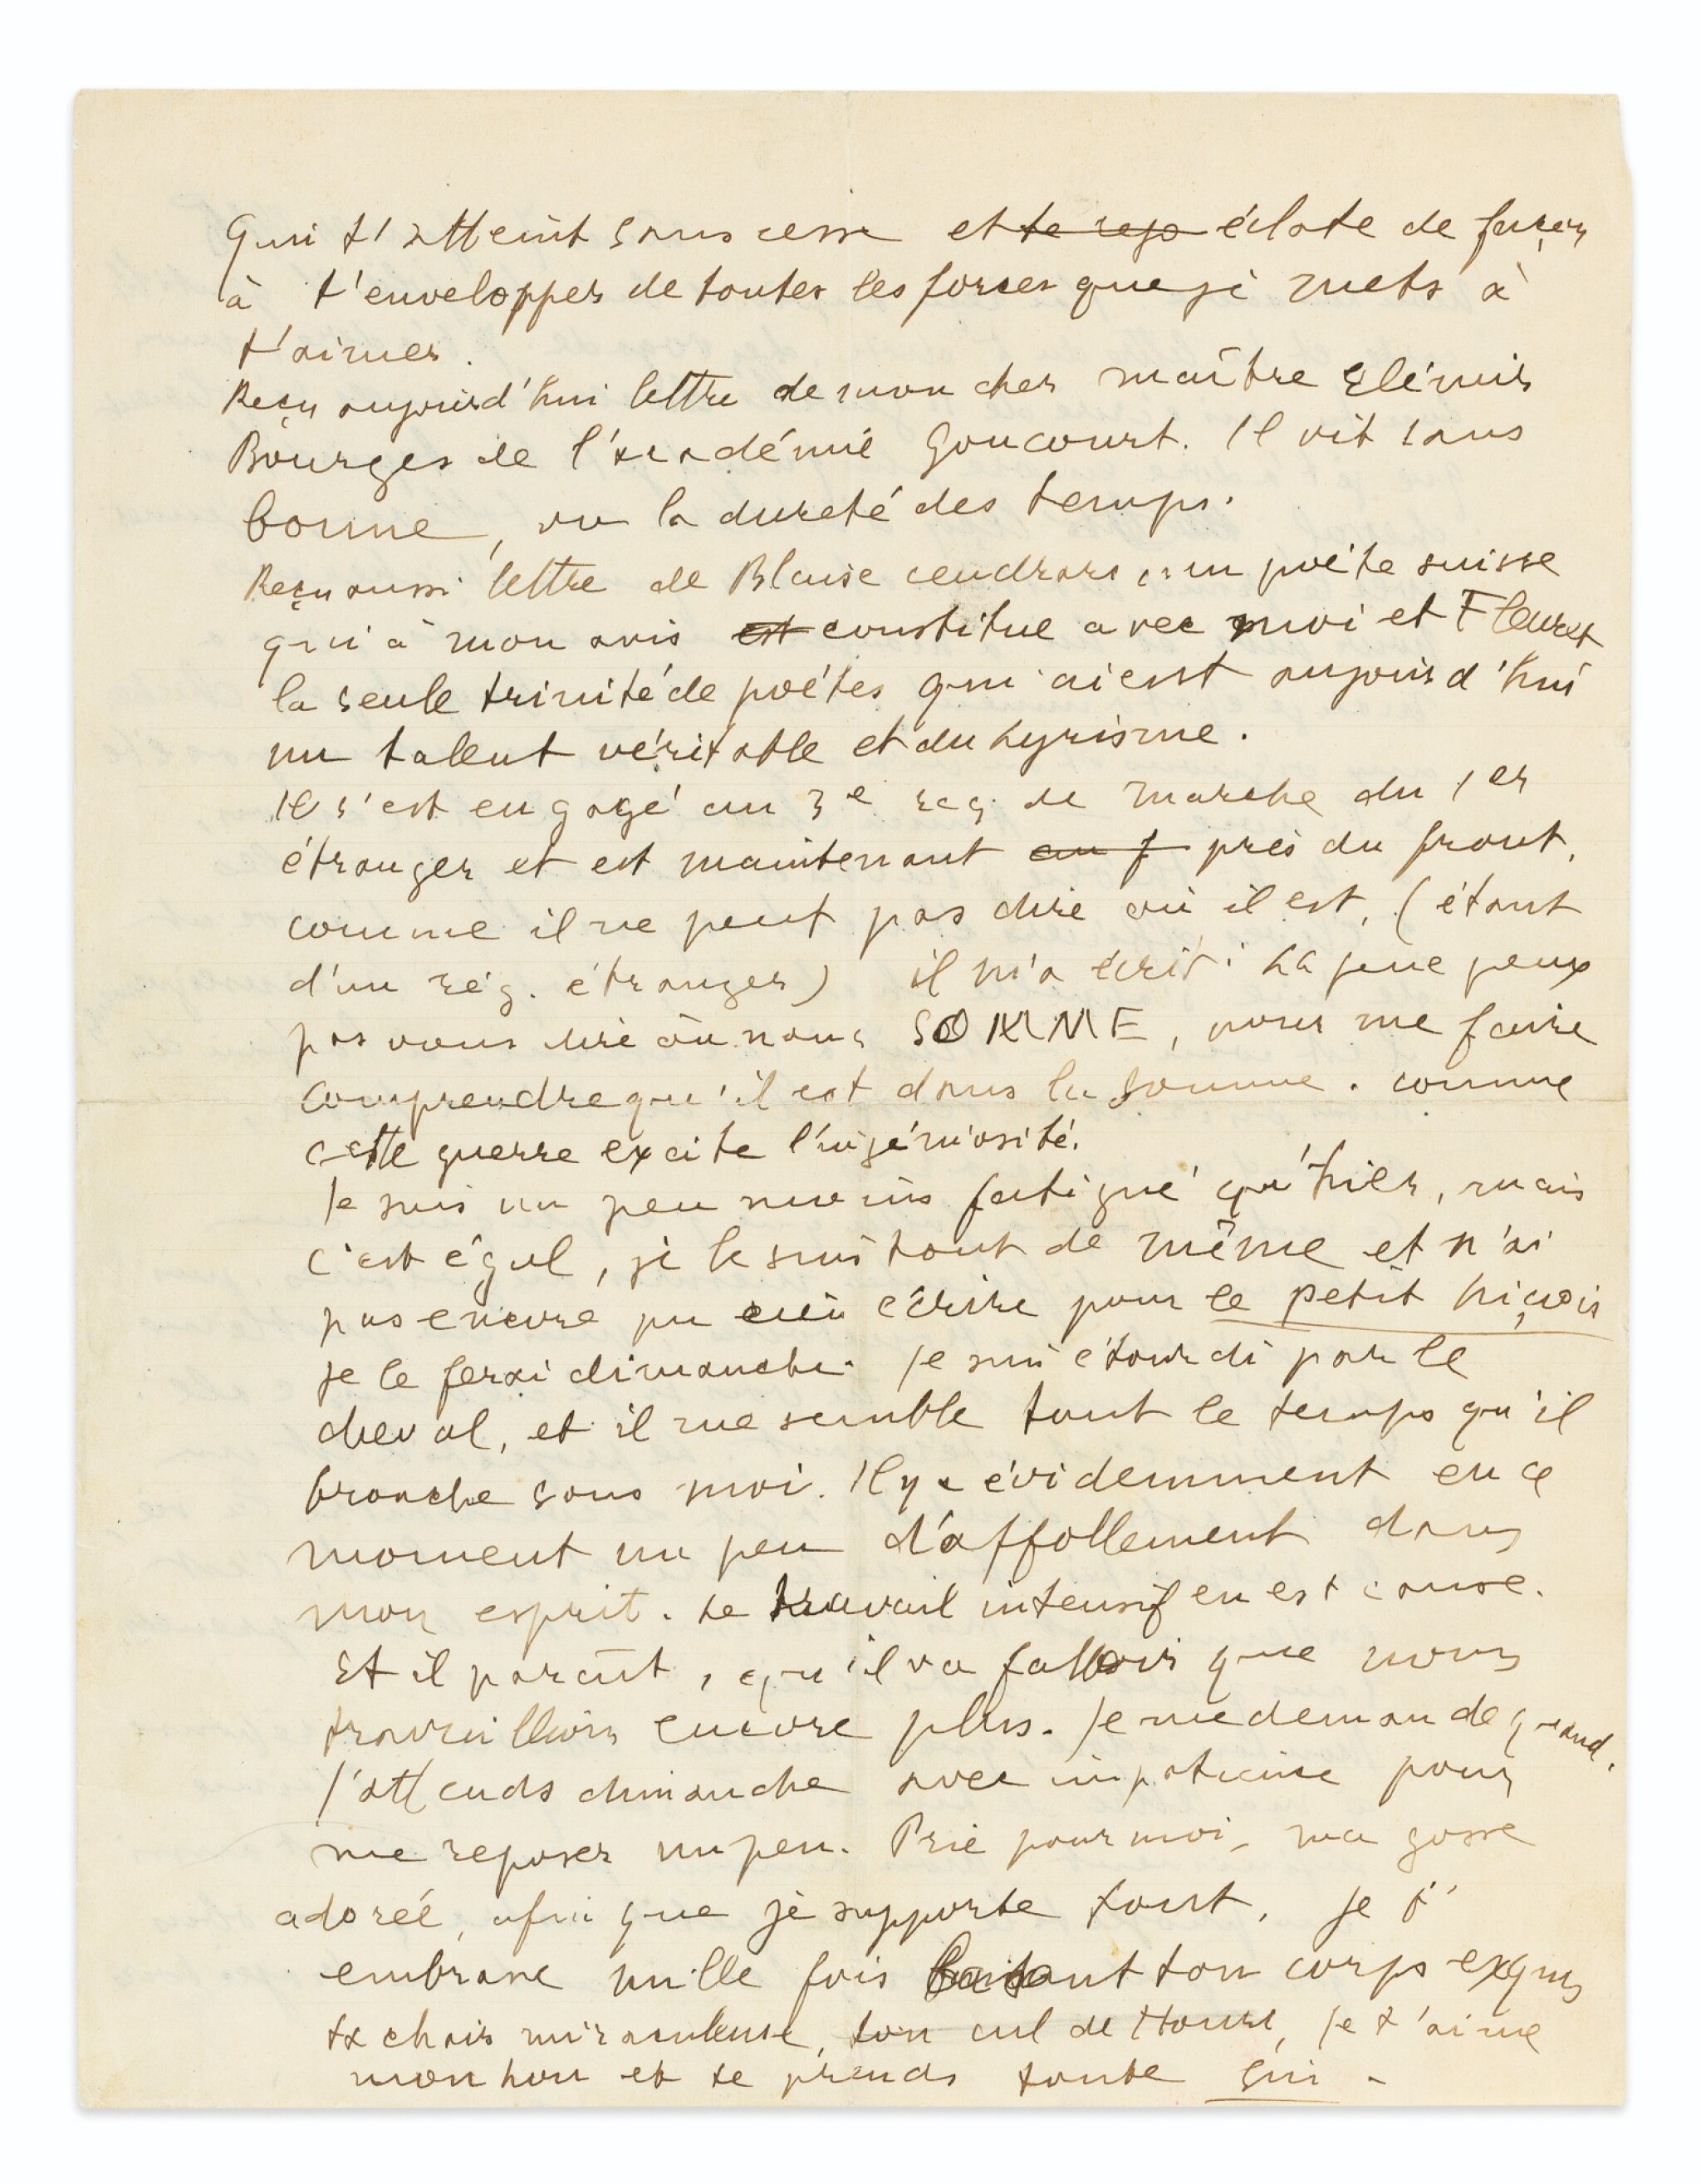 qui t'atteint sans cesse et te repo éclate de façon
à t'envelopper de toutes les forces que je mets à
t'aimer.
Reçu aujourd'hui lettre de mon cher maître Elémir
Bourges de l'académie Goncourt. Il vit sans
bonne, vu la dureté des temps.
Reçu aussi lettre de Blaise cendrars, un poéte suisse
qui à mon avis est constitue avec moi et Fleuret
la seule trinité de poétes qui aient aujourd'hui
un talent véritable et du lyrisme.
Il s'est engagé au 3e reg. de marche du 1er
étranger et est maintenant au f près du front,
comme il ne peut pas dire où il est, (étant
d'un rég. étranger) il m'a écrit : La je ne peux
pas vous dire où nous SOMME, pour me faire
comprendre qu'il est dans la Somme. comme
cette guerre excite l'ingéniosité.
Je suis un peu moins fatigué qu'hier, mais
c'est égal, je le suis tout de même et n'ai
pas encore pu écrire pour le petit niçois
je le ferai dimanche. Je suis étourdi par le
cheval, et il me semble tout le temps qu'il
bronche sous moi. Il y a évidemment en ce
moment un peu d'affollement dans
mon esprit. Le travail intensif en est cause.
Et il paraît, qu'il va falloir que nous
travaillions encore plus. Je me demande quand.
J'attends dimanche avec impatience pour
me reposer un peu. Prie pour moi, ma gosse
adorée, afin que je supporte tout. Je t'
embrasse mille fois baisant ton corps exquis
ta chair miraculeuse, ton cul de Houri, Je t'aime
mon Lou et te prends toute Gui -